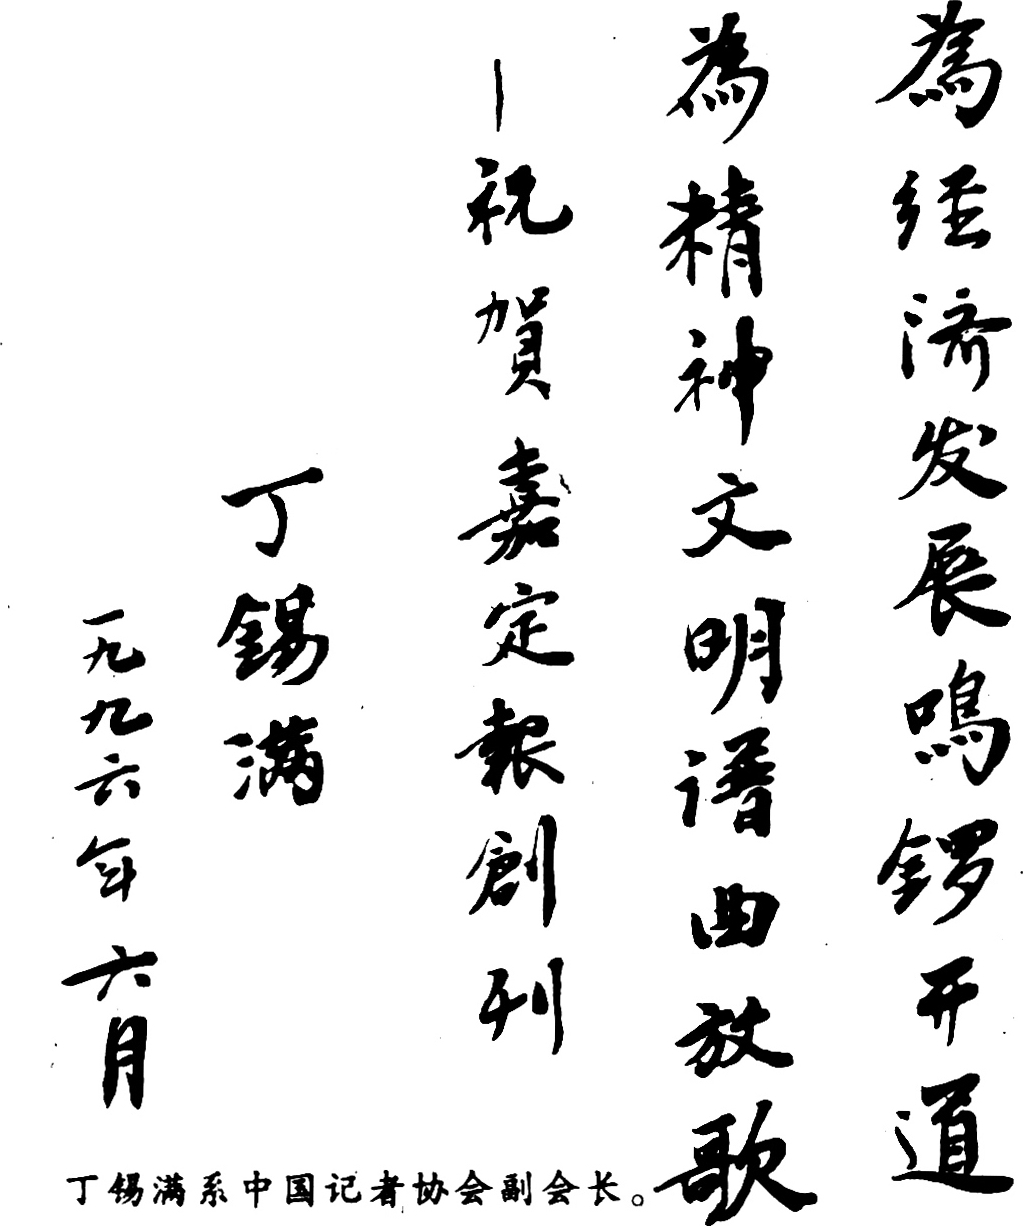 為经济发展鸣锣开道
為精神文明谱曲放歌
—祝賀嘉定報創刊
丁錫满
一九九六年六月
丁锡满系中国记者协会副会长。